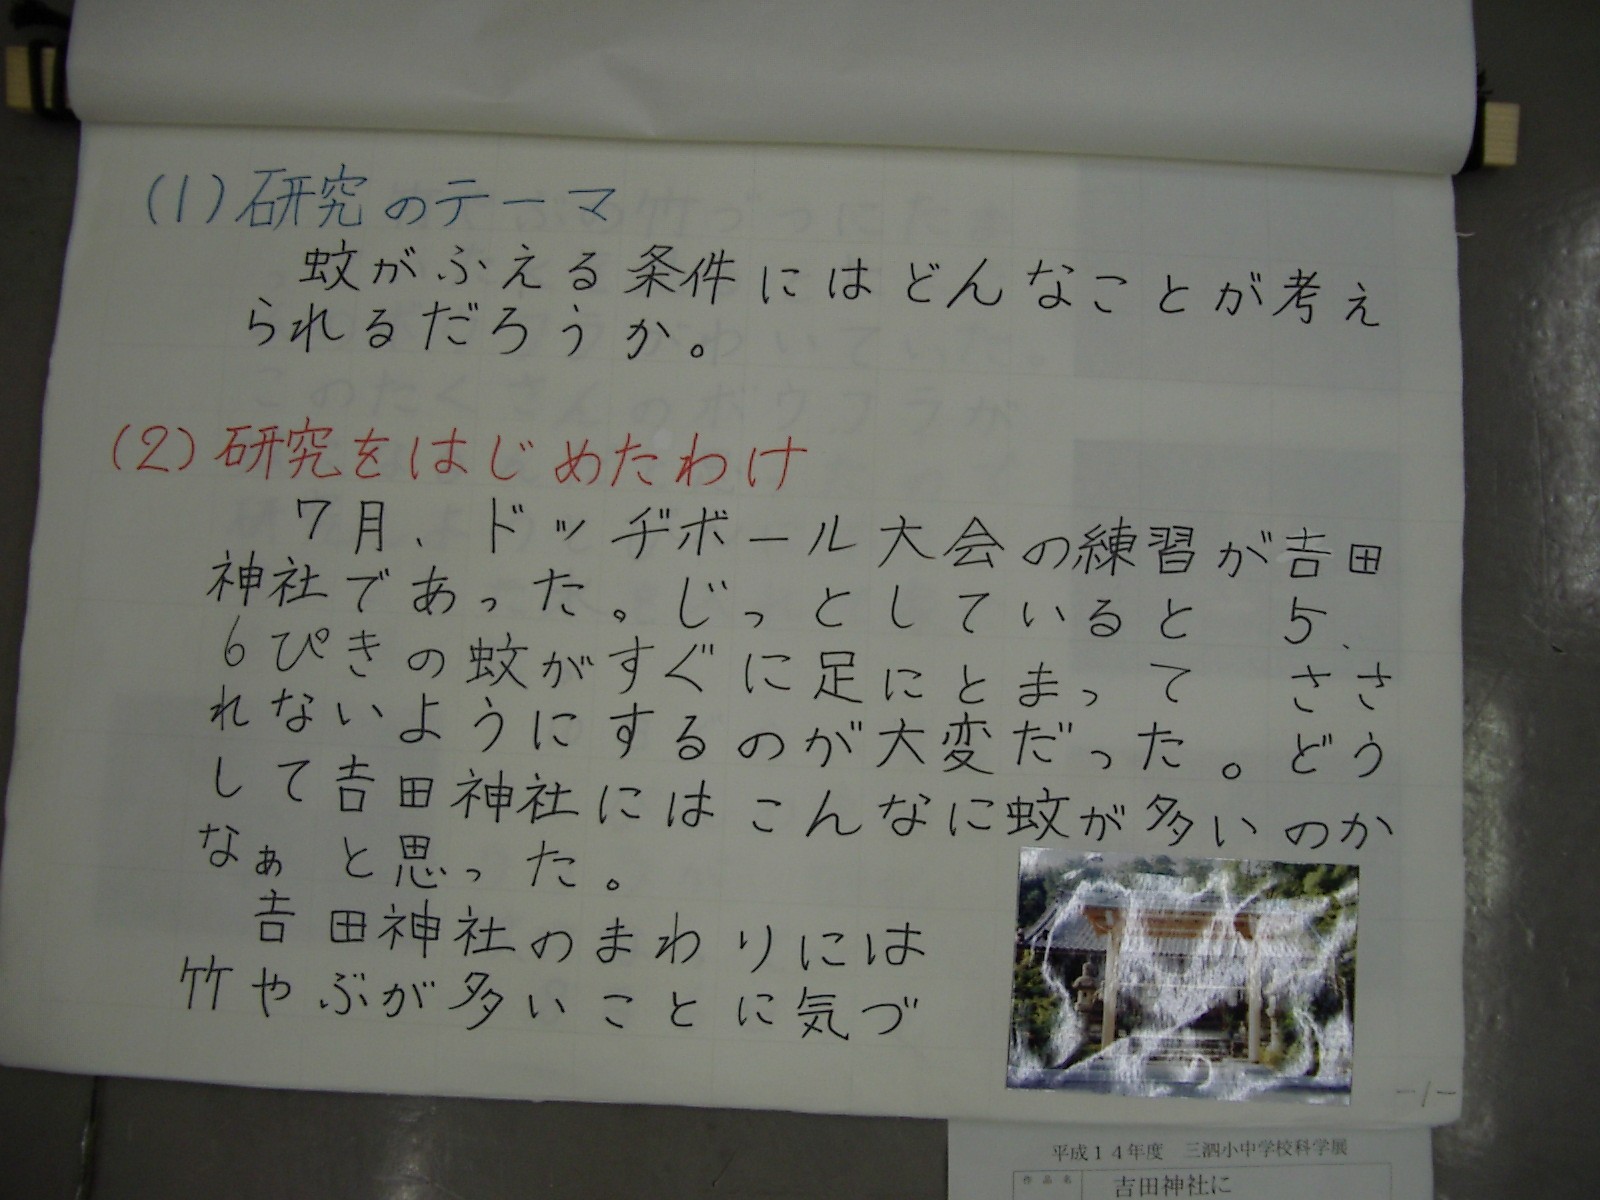 (1)研究のテーマ
蚊がふえる条件にはどんなことが考え
られるだろうか。
(2)研究をはじめたわけ
7月、ドッヂボール大会の練習が吉田
神社であった。じっとしていると 5、
6ぴきの蚊がすぐに足にとまって ささ
れないようにするのが大変だった。どう
して吉田神社にはこんなに蚊が多いのか
なぁ と思った。
吉田神社のまわりには
竹やぶが多いことに気づ
-1-
平成14年度 三泗小中学校科学展
作品名 吉田神社に